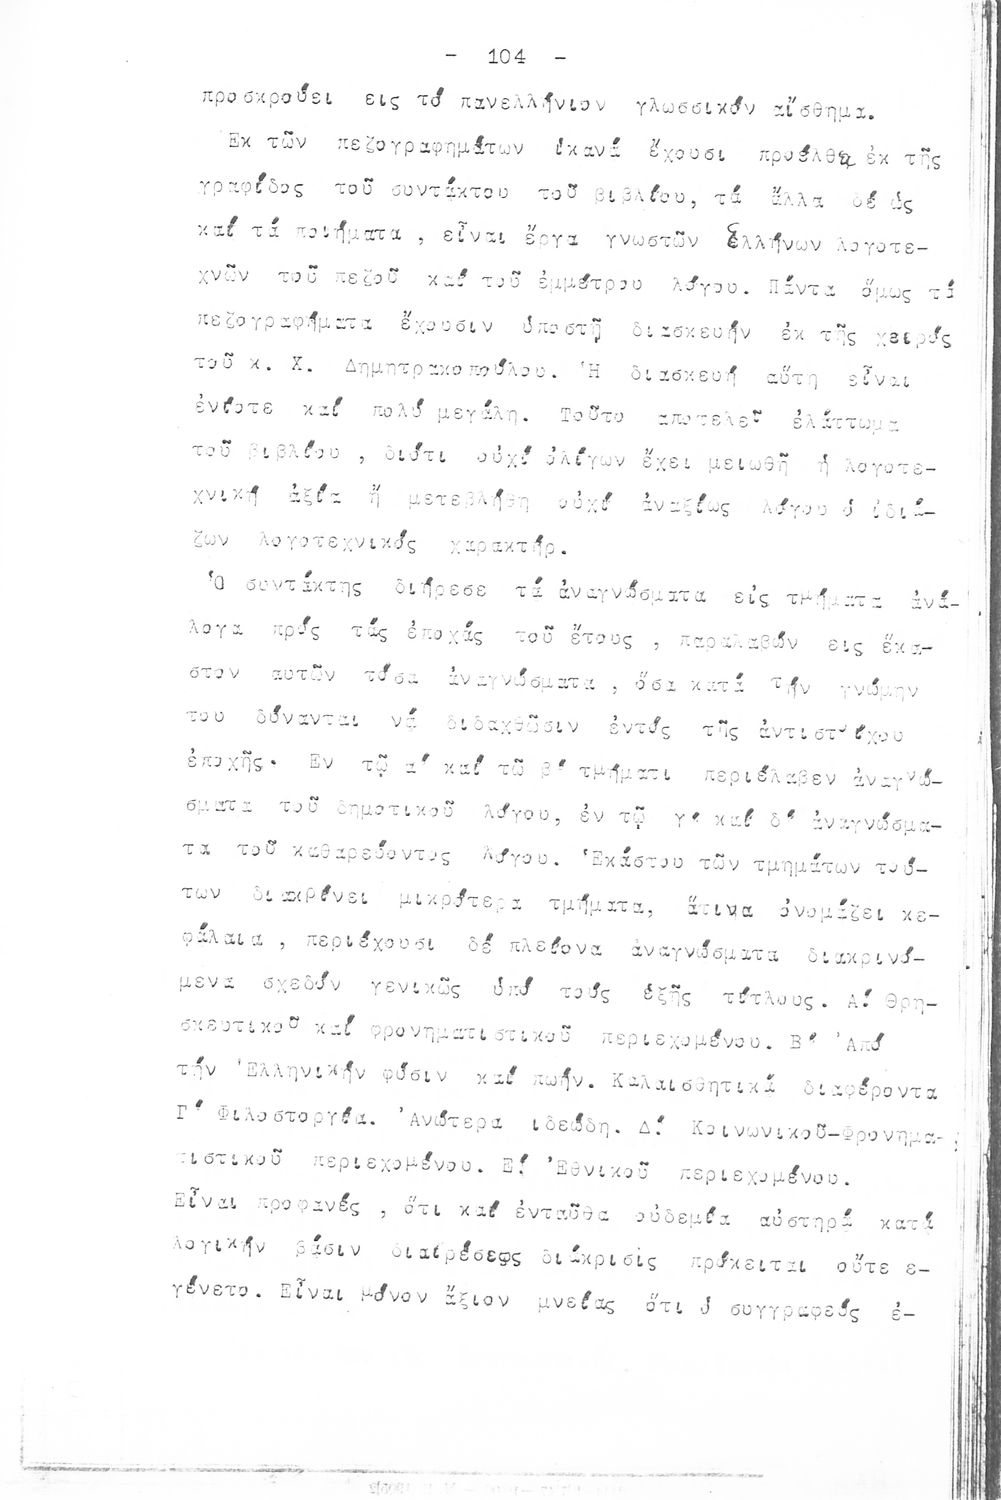 - 104 -
προσκρούει εις τό πανελλήνιον γλωσσικόν αἴσθημα.
Εκ τῶν πεζογραφημάτων ἱκανά ἔχουσι προέλθει ἐκ τῆς
γραφίδος τοῦ συντάκτου τοῦ βιβλίου, τά ἄλλα δέ ὡς
καί τά ποιήματα , εἶναι ἔργα γνωστῶν ἑλλήνων λογοτε-
χνῶν τοῦ πεζοῦ καί τοῦ ἐμμέτρου λόγου. Πάντα ὅμως τά
πεζογραφήματα ἔχουσιν ὑποστῇ διασκευήν ἐκ τῆς χειρός
τοῦ κ. Χ. Δημητρακοπούλου. Ἡ διασκευή αὕτη εἶναι
ἐνίοτε καί πολύ μεγάλη. Τοῦτο αποτελεῖ ἐλάττωμα
τοῦ βιβλίου , διότι οὐχί ὀλίγων ἔχει μειωθῆ ἡ λογοτε-
χνική ἀξία ἤ μετεβλήθη οὐχί ἀναξίως λόγου ὁ ἰδιά-
ζων λογοτεχνικός χαρακτήρ.
Ὁ συντάκτης διήρεσε τά ἀναγνώσματα εἰς τμήματα ἀνά-
λογα πρός τάς ἐποχάς τοῦ ἔτους , παραλαβών εις ἕκα-
στον αυτῶν τόσα ἀναγνώσματα , ὅσα κατά τήν γνώμην
του δύνανται νά διδαχθῶσιν ἐντός τῆς ἀντιστοίχου
ἐποχῆς· Εν τῷ α' καί τῶ β' τμήματι περιέλαβεν ἀναγνώ-
σματα τοῦ δημοτικοῦ λόγου, ἐν τῷ γ' καί δ' ἀναγνώσμα-
τα τοῦ καθαρεύοντος λόγου. Ἑκάστου τῶν τμημάτων τού-
των διακρίνει μικρότερα τμήματα, ἅτινα ὀνομάζει κε-
φάλαια , περιέχουσι δέ πλείονα ἀναγνώσματα διακρινό-
μενα σχεδόν γενικῶς ὑπό τούς ἑξῆς τίτλους. Α! Θρη-
σκευτικοῦ καί φρονηματιστικοῦ περιεχομένου. Β' Ἀπό
τήν Ἑλληνικήν φύσιν καί πωήν. Καλαισθητικά διαφέροντα
Γ' Φιλοστοργία. Ἀνώτερα ιδεώδη. Δ! Κοινωνικοῦ-Φρονημα-
τιστικοῦ περιεχομένου. Ε! Ἐθνικοῦ περιεχομένου.
Εἶναι προφανές , ὅτι καί ἐνταῦθα οὐδεμία αὐστηρά κατά
λογικήν βάσιν διαιρέσεως διάκρισις πρόκειται οὔτε ε-
γένετο. Εἶναι μόνον ἄξιον μνείας ὅτι ὁ συγγραφεύς ἐ-